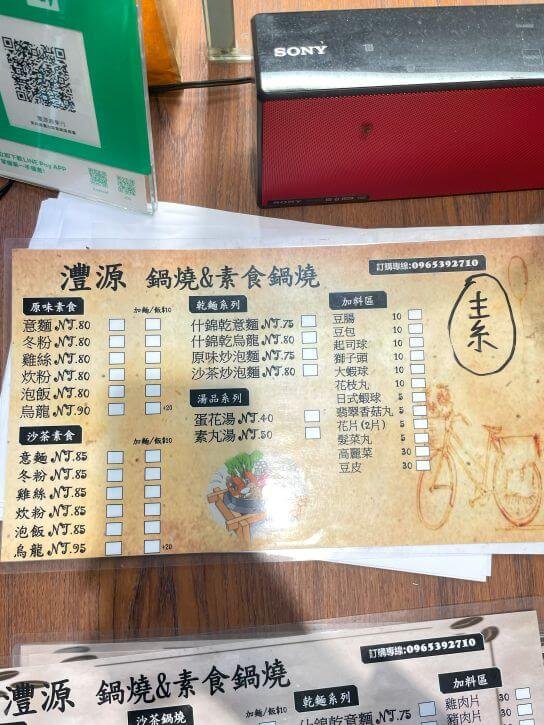 SONY
SONY
LINE Pay APP
訂購專線:0965392710
灃源 鍋燒&素食鍋燒
素
原味素食 加麵/飯$10
意麵 NT.80
冬粉 NT.80
雞絲 NT.80
炊粉 NT.80
泡飯 NT.80
烏龍 NT.90 +20
沙茶素食 加麵/飯$10
意麵 NT.85
冬粉 NT.85
雞絲 NT.85
炊粉 NT.85
泡飯 NT.85
烏龍 NT.95 +20
乾麵系列
什錦乾意麵 NT.75
什錦乾烏龍 NT.80
原味炒泡麵 NT.75
沙茶炒泡麵 NT.80
湯品系列
蛋花湯 NT.40
素丸湯 NT.50
加料區
豆腸 10
豆包 10
起司球 10
獅子頭 10
大蝦球 10
花枝丸 10
日式蝦球 5
翡翠香菇丸 5
花片(2片) 5
髮菜丸 5
高麗菜 30
豆皮 30
訂購專線:0965392710
灃源 鍋燒&素食鍋燒
加麵/飯$10
沙茶鍋燒
乾麵系列
什錦乾意麵 NT.75
加料區
雞肉片 30
豬肉片